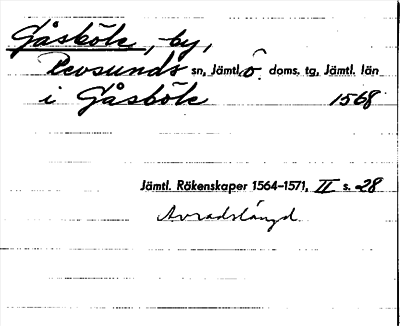 Gåsböle, by,
Revsunds sn, Jämtl. ö. doms. tg, Jämtl. län
i Gåsböle 1568
Jämtl. Räkenskaper 1564-1571, II s. 28
Avradslängd